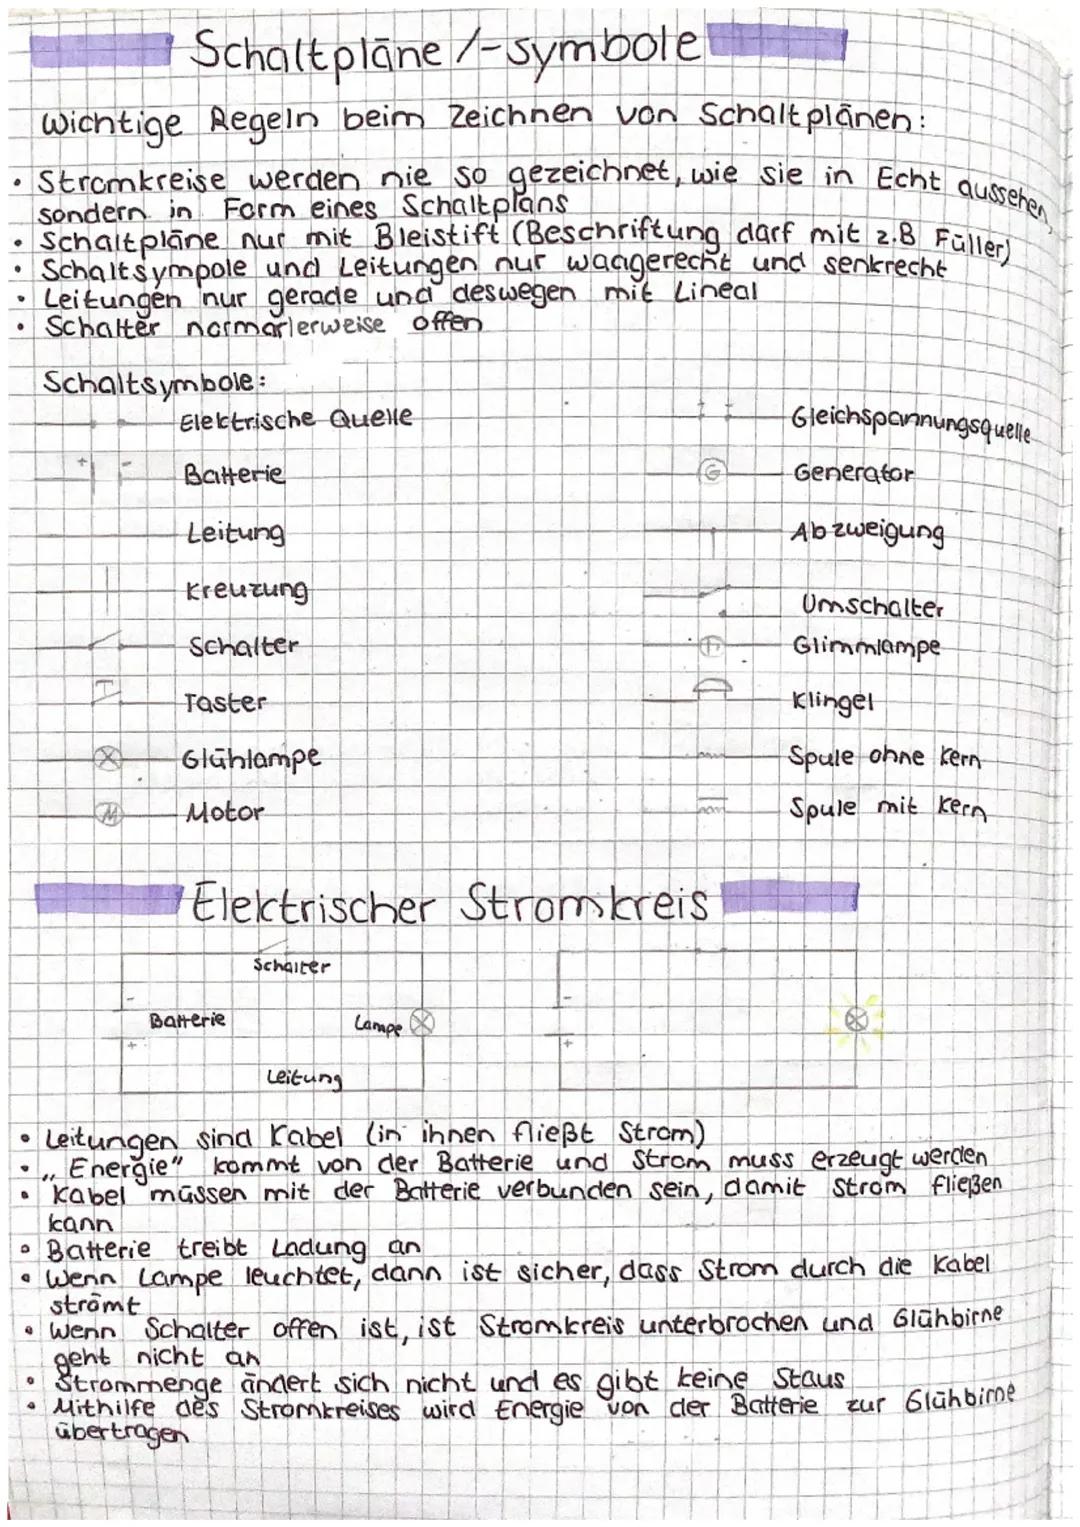 Schaltpläne /-symbole
Wichtige Regeln beim Zeichnen von Schaltplänen:
• Stromkreise werden nie so gezeichnet, wie sie in Echt aussehen,
sondern in Form eines Schaltplans
• Schaltpläne nur mit Bleistift (Beschriftung darf mit z.B Füller)
• Schaltsympole und Leitungen nur waagerecht und senkrecht
• Leitungen nur gerade und deswegen mit Lineal
• Schalter normarlerweise offen
Schaltsymbole:
Elektrische Quelle
+ - Batterie
Leitung
Kreuzung
Schalter
Taster
Glühlampe
M Motor
Gleichspannungsquelle
G Generator
Abzweigung
Umschalter
Glimmlampe
Klingel
Spule ohne Kern
Spule mit Kern
Elektrischer Stromkreis
Schalter
- -
Batterie Lampe
+ +
Leitung
• Leitungen sind Kabel (in ihnen fließt Strom)
• „Energie" kommt von der Batterie und Strom muss erzeugt werden
• Kabel müssen mit der Batterie verbunden sein, damit Strom fließen
kann
• Batterie treibt Ladung an
• Wenn Lampe leuchtet, dann ist sicher, dass Strom durch die Kabel
strömt
• Wenn Schalter offen ist, ist Stromkreis unterbrochen und Glühbirne
geht nicht an
• Strommenge ändert sich nicht und es gibt keine Staus
• Mithilfe des Stromkreises wird Energie von der Batterie zur Glühbirne
übertragen